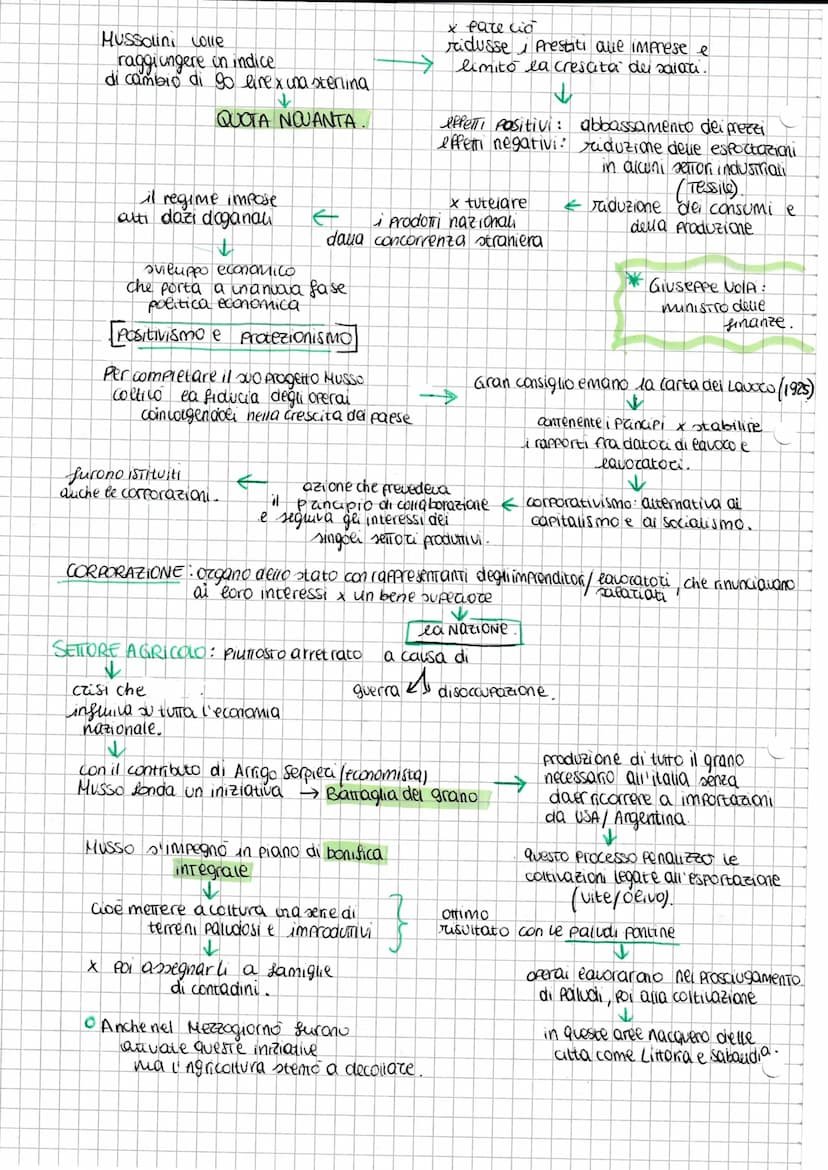 Mussolini volle
raggiungere un indice
di cambio di 90 lire x una sterlina
QUOTA NOVANTA.
x fare ciò
ridusse i prestiti alle imprese e
limitò la crescita dei salari.
effetti positivi: abbassamento dei prezzi
effetti negativi: riduzione delle esportazioni
in alcuni settori industriali
(Tessile).
riduzione dei consumi e
della produzione
x tutelare
i prodotti nazionali
dalla concorrenza straniera
il regime impose
alti dazi doganali
sviluppo economico
che porta a una nuova fase
politica economica
Positivismo e Protezionismo
* Giuseppe Volpi:
ministro delle
finanze.
Per completare il suo progetto Musso
coltivò la fiducia degli operai
coinvolgendoli nella crescita del paese
Gran consiglio emanò la carta del Lavoro (1925)
contenente i principi x stabilire
i rapporti fra datori di lavoro e
lavoratori.
corporativismo: alternativa al
capitalismo e al socialismo.
azione che prevedeva
il principio di collaborazione
e seguiva gli interessi dei
singoli settori produttivi.
furono istituiti
anche le corporazioni.
CORPORAZIONE: organo dello stato con rappresentanti degli imprenditori/lavoratori, che rinunciavano
salariati
ai loro interessi x un bene superiore
la NAZIONE.
SETTORE AGRICOLO: piuttosto arretrato a causa di
guerra disoccupazione.
crisi che
influiva su tutta l'economia
nazionale.
con il contributo di Arrigo Serpieri (economista)
Musso fonda un iniziativa → Battaglia del grano
produzione di tutto il grano
necessario all'italia senza
dover ricorrere a importazioni
da USA/Argentina.
questo processo penalizzò le
coltivazioni legate all'esportazione
(vite/olivo).
Musso s'impegnò in piano di bonifica
integrale
cioè mettere a coltura una serie di
terreni paludosi e improduttivi
x poi assegnarli a famiglie
di contadini.
ottimo
risultato con le paludi pontine
operai lavorarono nel prosciugamento
di paludi, poi alla coltivazione
in queste aree nacquero delle
città come Littoria e Sabaudia.
Anche nel Mezzogiorno furono
attivate queste iniziative
ma l'agricoltura stentò a decollare.